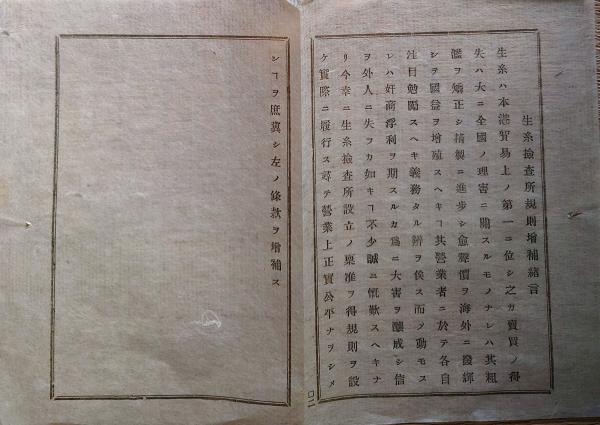 生糸檢査所規則增補緖言
生糸ハ本港貿易上ノ第一ニ位シ之カ賣買ノ得
失ハ大ニ全國ノ理害ニ關スルモノナレハ其粗
濫ヲ矯正シ精製ニ進歩シ愈聲價ヲ海外ニ發輝
シヲ國益ヲ增殖スヘキヿ其營業者ニ於テ各自
注目勉勵スヘキ義務タル辨ヲ俟ス而ノ動モス
レハ奸商浮利ヲ期スルカ爲ニ大害ヲ釀成シ信
ヲ外人ニ失フカ如キヿ不少誠ニ慨歎スヘキナ
リ今幸ニ生糸檢査所設立ノ稟准ヲ得規則ヲ設
ケ實際ニ履行ス尋テ營業上正實公平ナヲシメ
シヿヲ庶冀シ左ノ條款ヲ增補ス